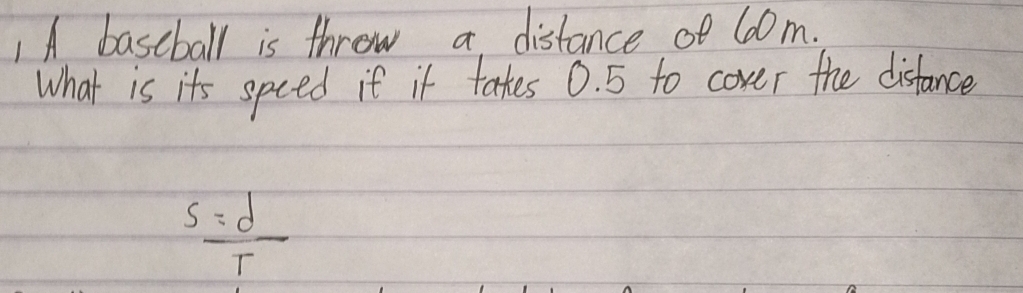 1 A baseball is throw a distance of 60m.
What is its speed if it takes 0.5 to cover the distance
s = d
T